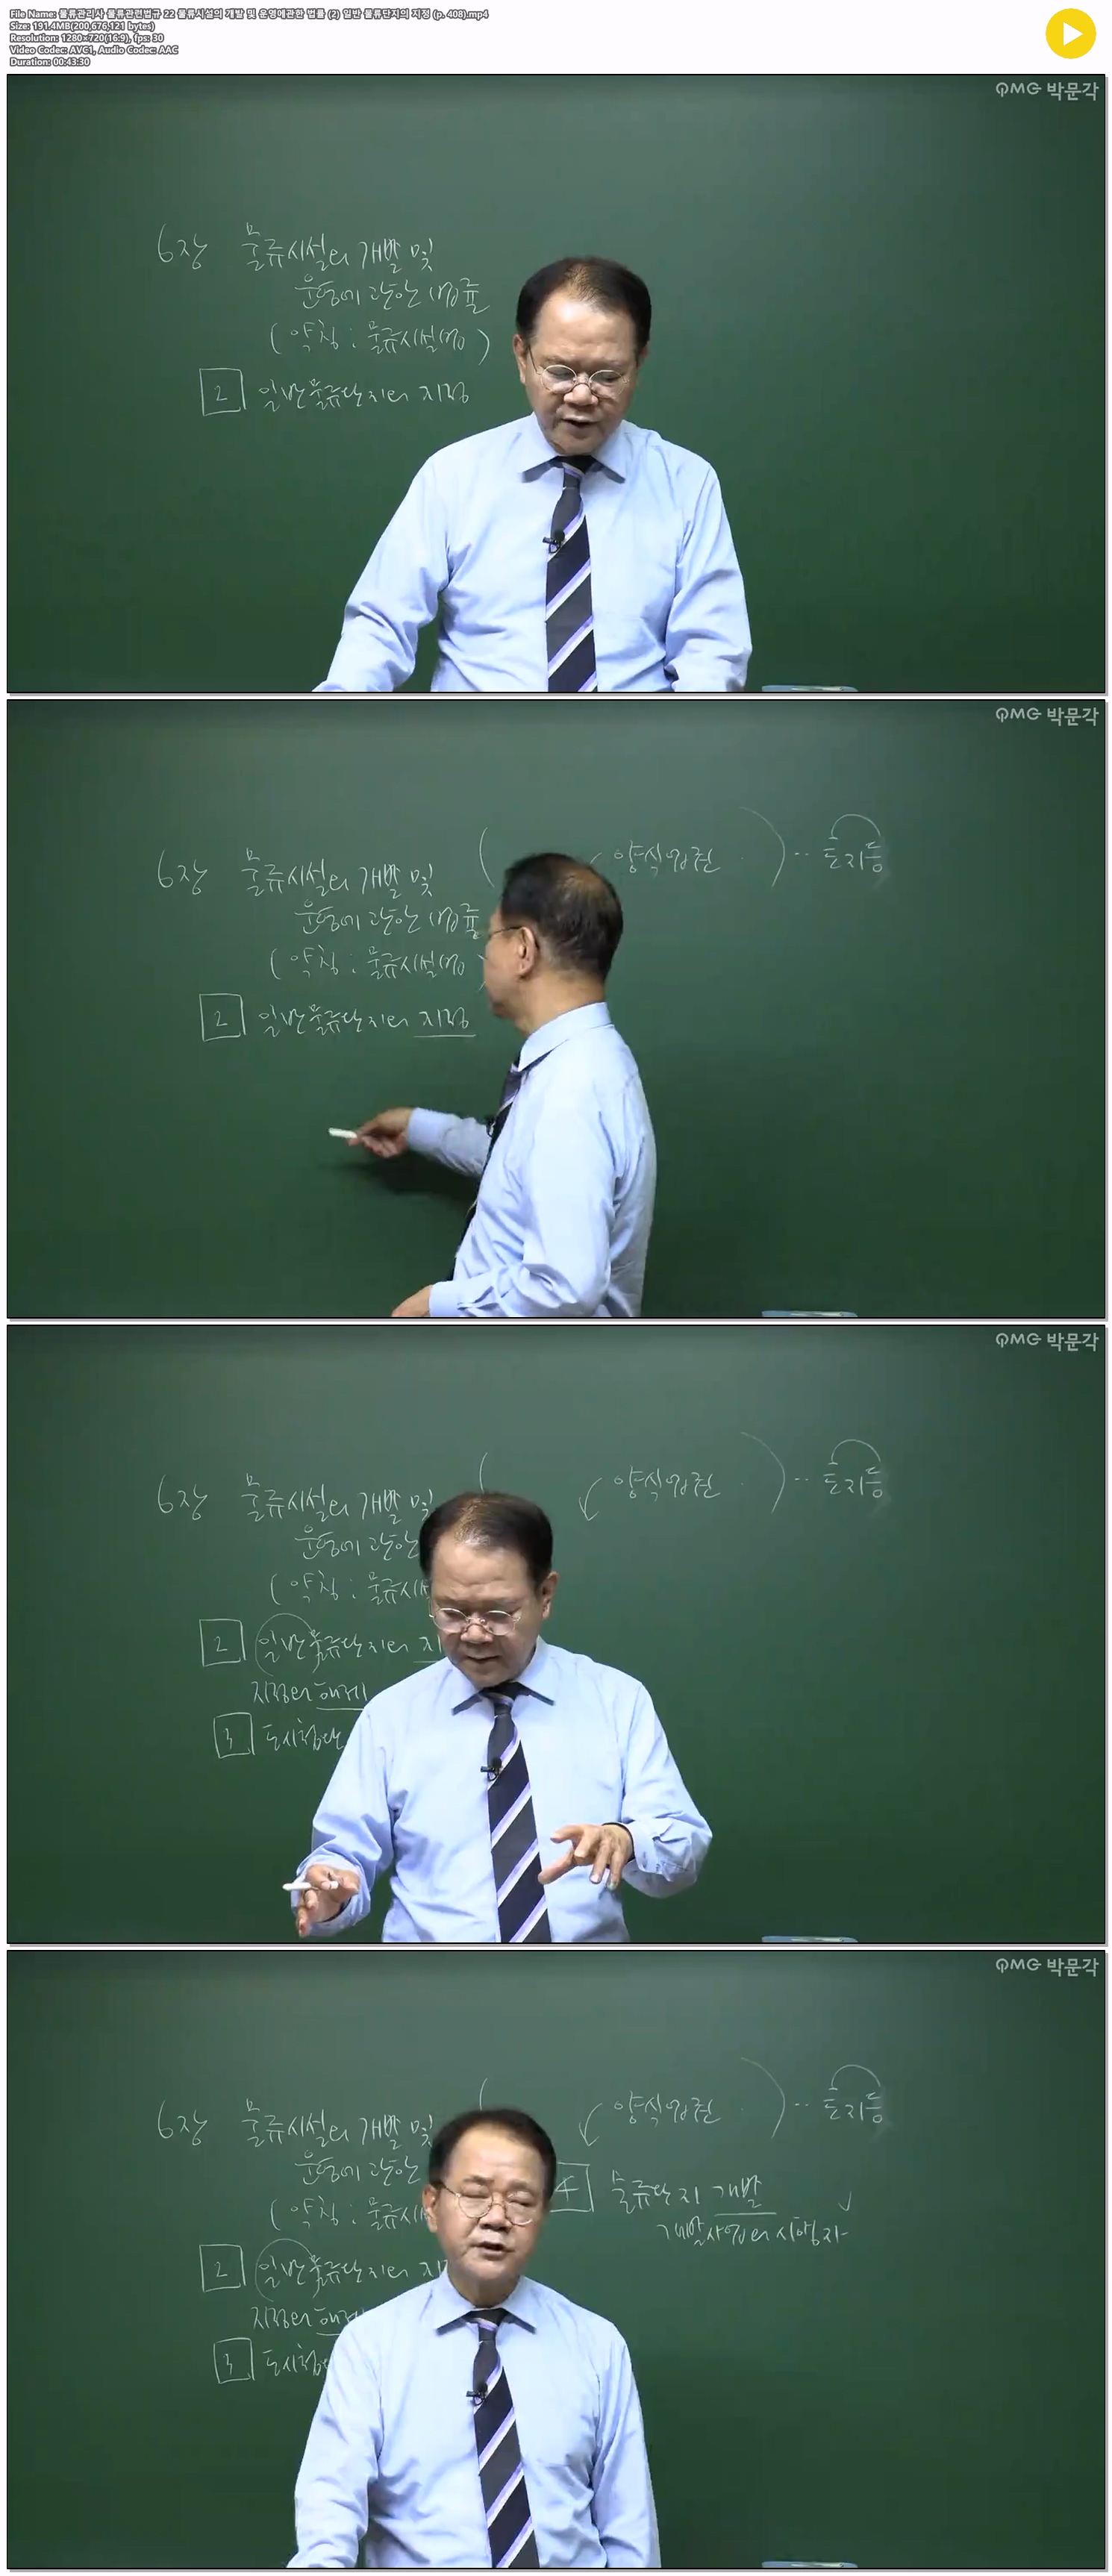 File Name: 물류관리사 물류관련법규 22 물류시설의 개발 및 운영에관한 법률 (2) 일반 물류단지의 지정 (p. 408).mp4
Size: 191.4MB(200,676,121 bytes)
Resolution: 1280×720(16:9), fps: 30
Video Codec: AVC1, Audio Codec: AAC
Duration: 00:43:30
PMG 박문각
6장 물류시설의 개발 및
운영에 관한 법률
(약칭 : 물류시설법)
2 일반물류단지의 지정
PMG 박문각
( 양식업권 ) ·· 토지등
6장 물류시설의 개발 및
운영에 관한 법률
(약칭 : 물류시설법
2 일반물류단지의 지정
PMG 박문각
( 양식업권 ) ·· 토지등
6장 물류시설의 개발 및
운영에 관한
(약칭 : 물류시
2 일반물류단지의 지
지정의 해제
3 도시첨단
PMG 박문각
( 양식업권 ) ·· 토지등
6장 물류시설의 개발 및
운영에 관한
(약칭 : 물류시
4 물류단지 개발
개발사업의 시행자
2 일반물류단지의 지
지정의 해제
3 도시첨